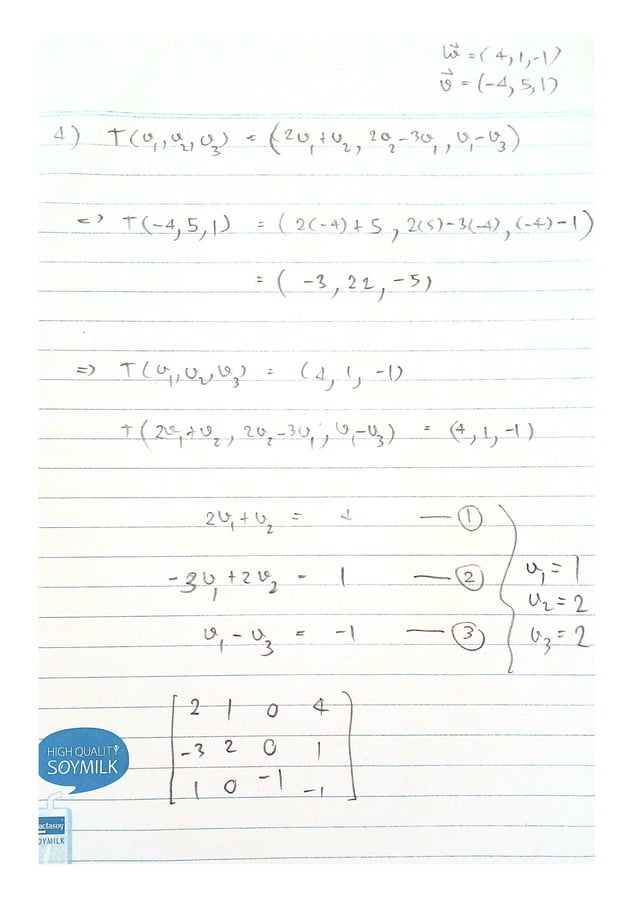 w⃗ = (4,1,-1)
v⃗ = (-4,5,1)
4) T(v₁,v₂,v₃) = (2v₁+v₂, 2v₂-3v₁, v₁-v₃)
=> T(-4,5,1) = (2(-4)+5, 2(5)-3(-4), (-4)-1)
= (-3,22,-5)
=> T(v₁,v₂,v₃) = (4,1,-1)
T(2v₁+v₂, 2v₂-3v₁, v₁-v₃) = (4,1,-1)
2v₁+v₂ = 4 — ①
-3v₁+2v₂ = 1 — ②
v₁-v₃ = -1 — ③
v₁=1
v₂=2
v₃=2
2 1 0 4
-3 2 0 1
1 0 -1 -1
HIGH QUALITY
SOYMILK
actasoy
OYMILK